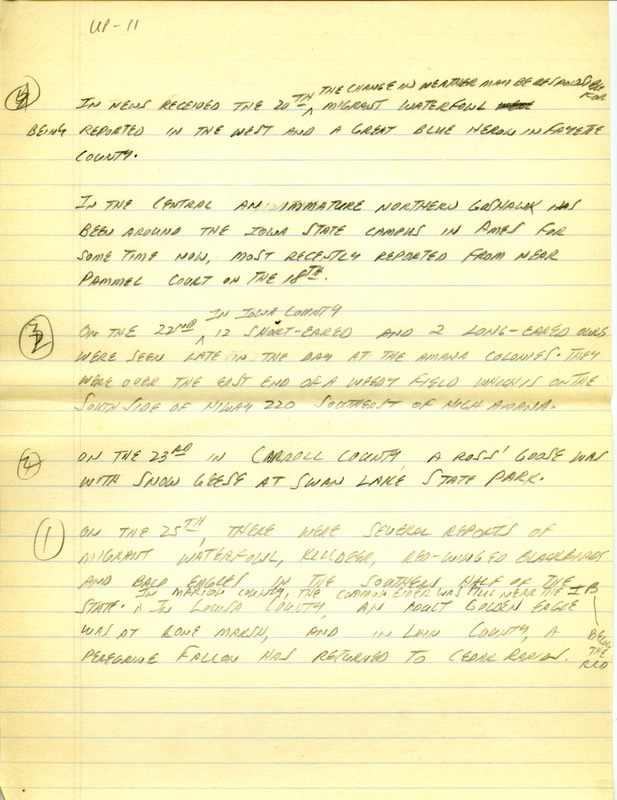 UP-11
THE CHANGE IN WEATHER MAY BE RESPONSIBLE FOR
4 IN NEWS RECEIVED THE 20TH ^ MIGRANT WATERFOWL
BEING REPORTED IN THE WEST AND A GREAT BLUE HERON IN FAYETTE
COUNTY.
IN THE CENTRAL AN IMMATURE NORTHERN GOSHAWK HAS
BEEN AROUND THE IOWA STATE CAMPUS IN AMES FOR
SOME TIME NOW, MOST RECENTLY REPORTED FROM NEAR
PAMMEL COURT ON THE 18TH.
IN IOWA COUNTY
3 ON THE 22ND ^ 12 SHORT-EARED AND 2 LONG-EARED OWLS
WERE SEEN LATE IN THE DAY AT THE AMANA COLONIES. THEY
WERE OVER THE EAST END OF A WEEDY FIELD WHICH IS ON THE
SOUTH SIDE OF HIWAY 220 SOUTHEAST OF HIGH AMANA.
2 ON THE 23RD IN CARROLL COUNTY A ROSS' GOOSE WAS
WITH SNOW GEESE AT SWAN LAKE STATE PARK.
1 ON THE 25TH, THERE WERE SEVERAL REPORTS OF
MIGRANT WATERFOWL, KILLDEER, RED-WINGED BLACKBIRDS
AND BALD EAGLES IN THE SOUTHERN HALF OF THE
IN MARION COUNTY, THE COMMON EIDER WAS STILL NEAR THE
STATE. ^ IN LOUISA COUNTY, AN ADULT GOLDEN EAGLE
WAS AT CONE MARSH, AND IN LINN COUNTY, A
PEREGRINE FALCON HAS RETURNED TO CEDAR RAPIDS.
BELOW
THE
RED